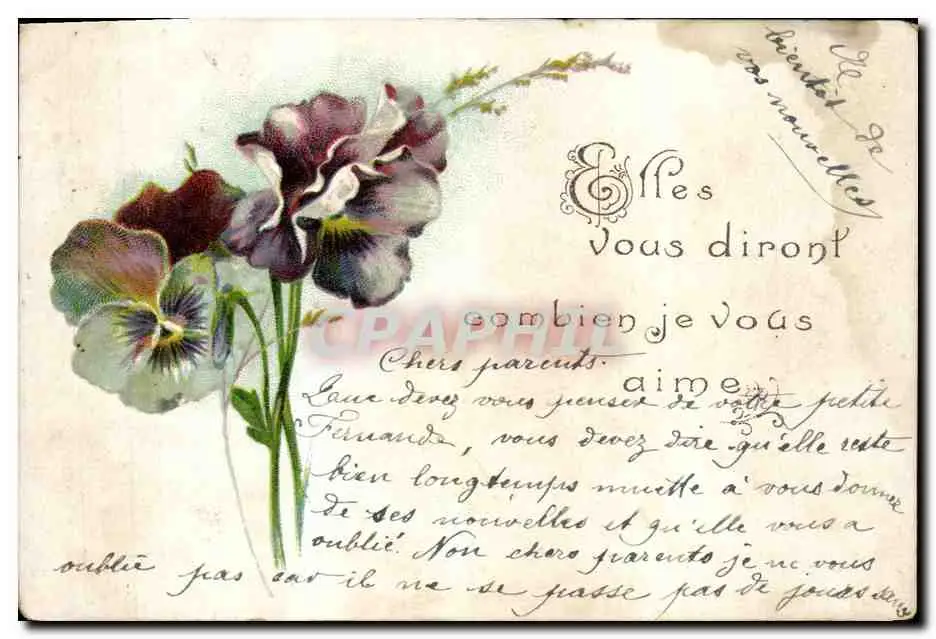 bientôt de
vos nouvelles
Elles
vous diront
combien je vous
aime
CPAPHIL
Chers parents.
Que devez vous penser de votre petite
Fernande, vous devez dire qu'elle reste
bien longtemps muette à vous donner
de ses nouvelles et qu'elle vous a
oublié. Non chers parents je ne vous
oublie pas car il ne se passe pas de jours sans